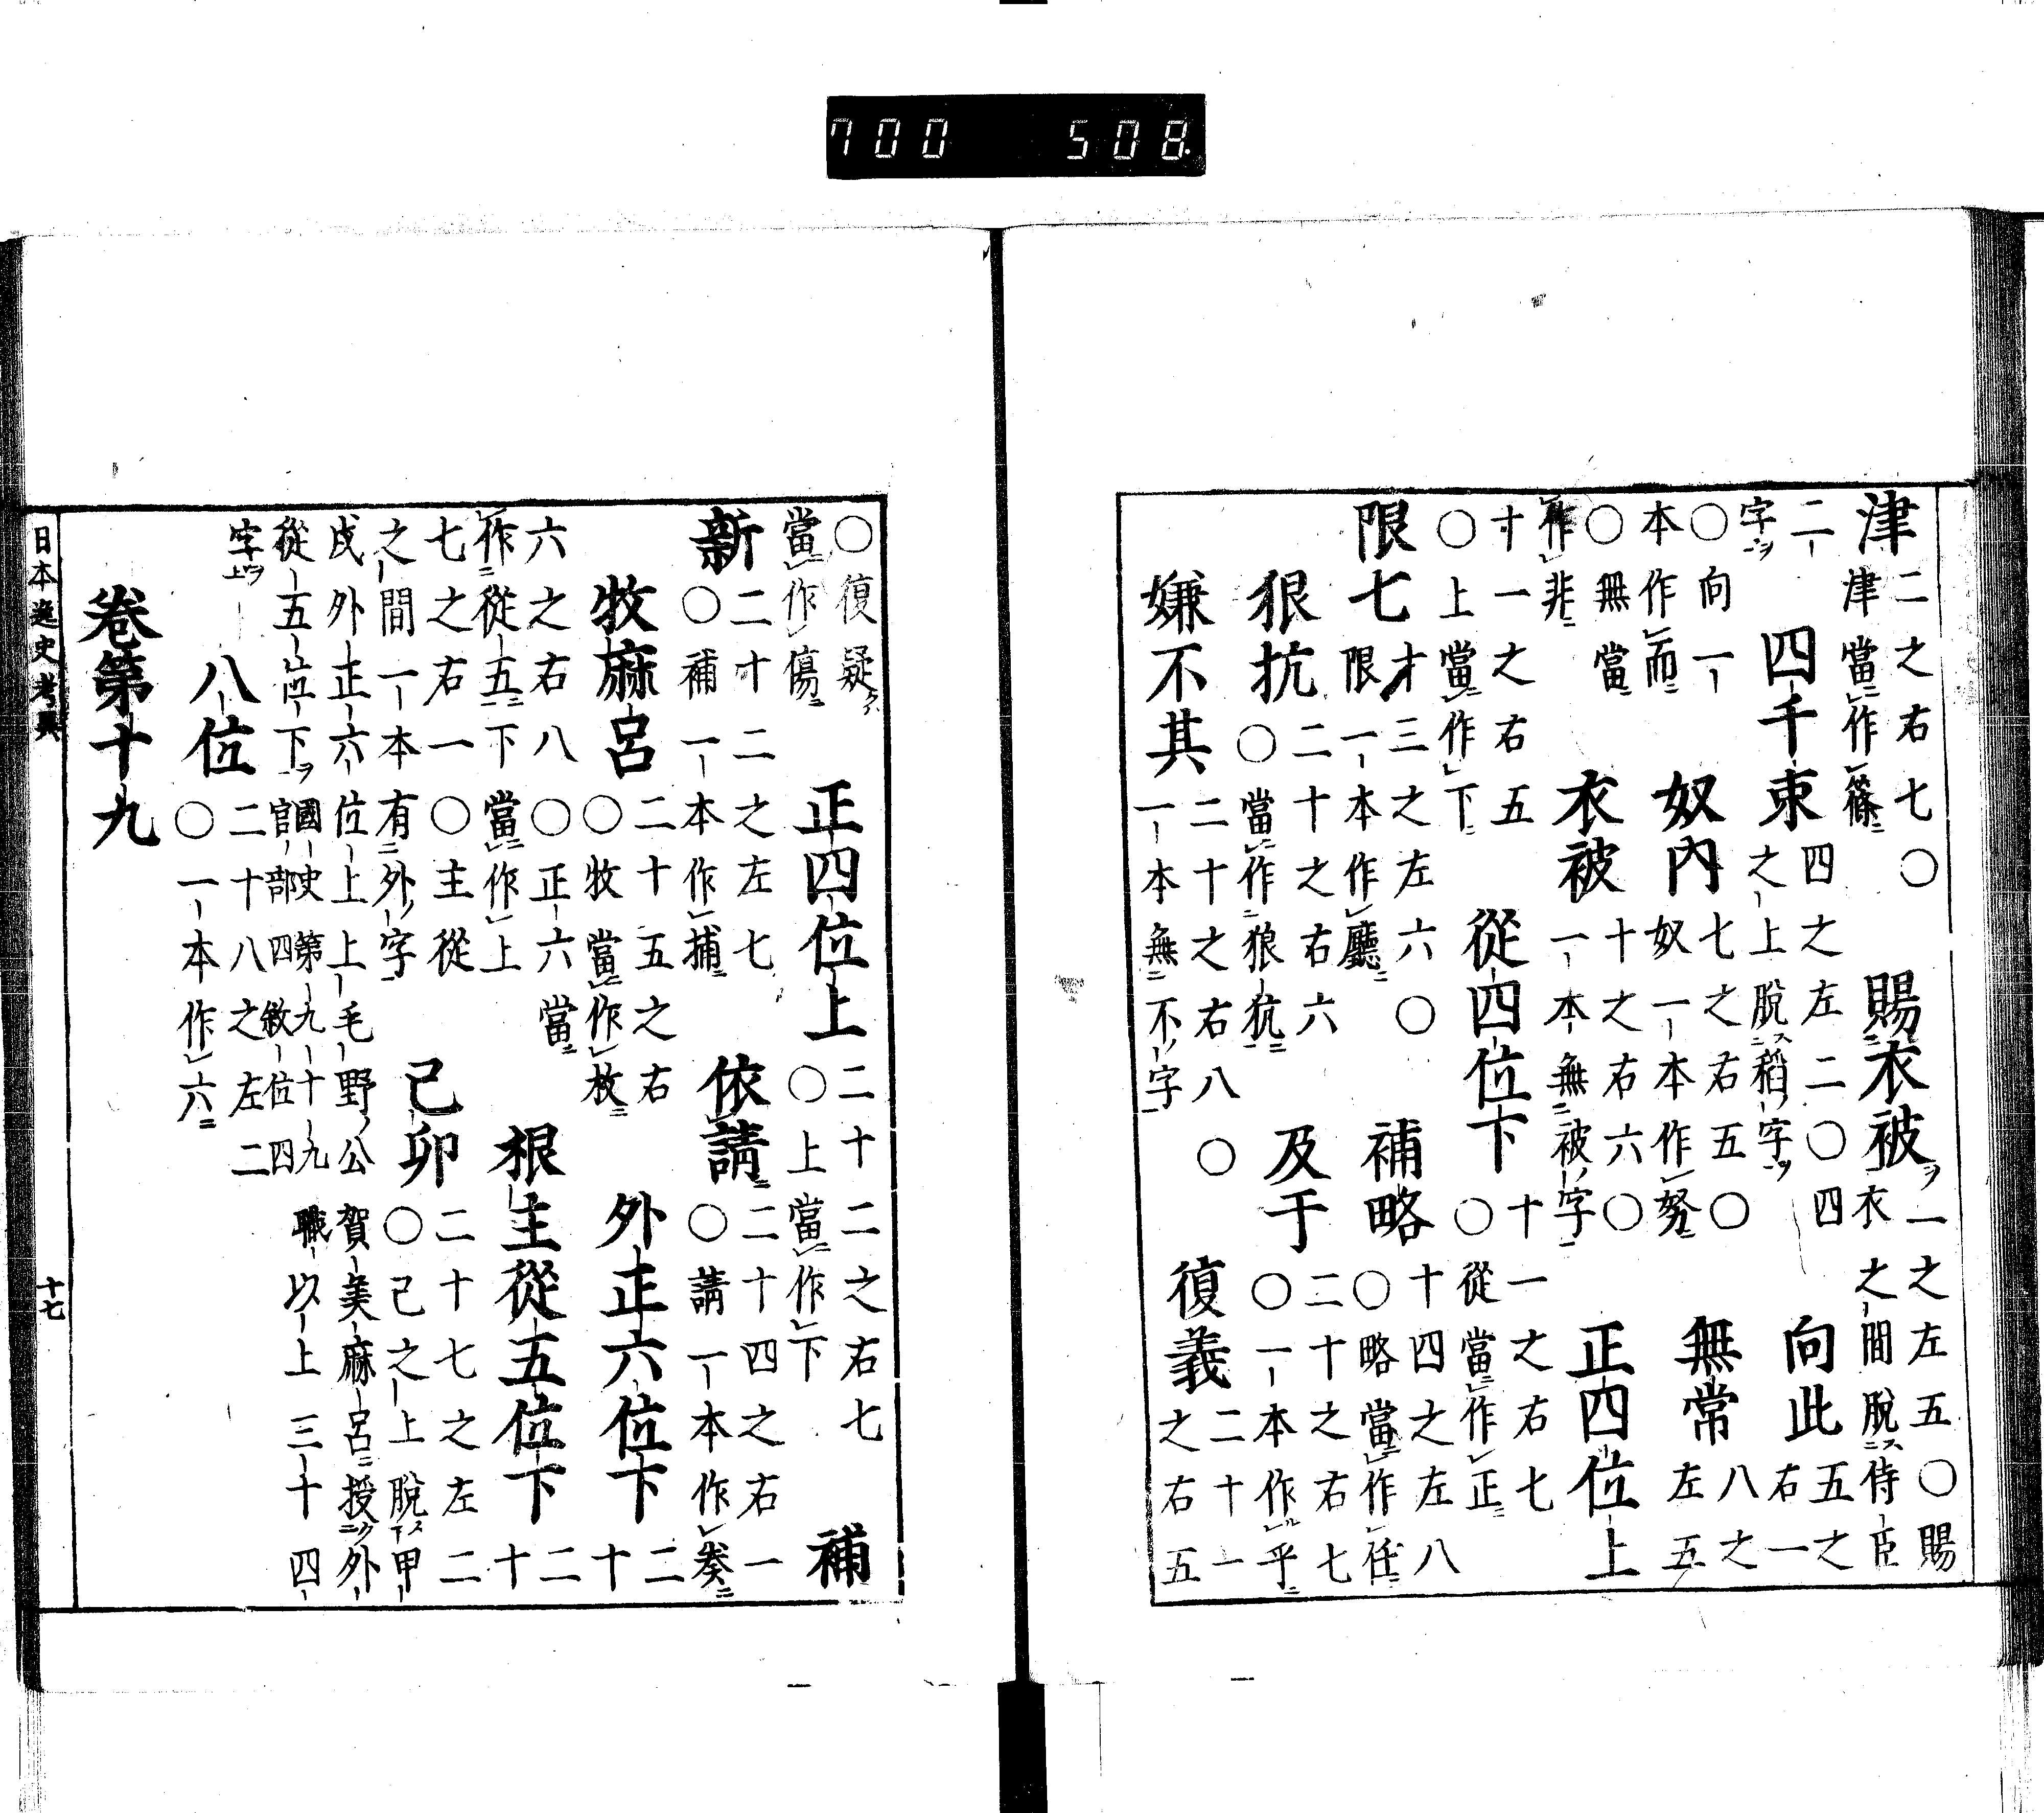 津二之右七○
津當作篠
賜衣被一之左五○賜
衣之間脫侍臣
二
字
四千束四之左二○四
之上脫稻字
向此五之
右一
○向一
本作而
奴内七之右五○
奴一本作努
無常八之
左五
○無當
作非
衣被十之右六○
一本無被字
正四位上
十一之右五
○上當作下
從四位下十一之右七
○從當作正
限七十三之左六○
限一本作廳
補略十四之左八
○略當作任
狠抗二十之右六
○當作狼抗
及于二十之右七
○一本作乎
嫌不其二十之右八○
一本無不字
復義二十一
之右五
○復疑
當作傷
正四位上二十二之右七
○上當作下
補
新二十二之左七
○補一本作捕
依請二十四之右一
○請一本作奏
牧麻呂二十五之右
○牧當作枚
外正六位下二
十
六之右八○正六當
作從五下當作上
根主從五位下二
十
七之右一○主從
之間一本有外字
己卯二十七之左二
○己之上脫甲
戌外正六位上上毛野公賀美麻呂授外
從五位下國史第九十九職
官部四敘位四
以上三十四
字
八位二十八之左二
○一本作六
卷第十九
日本逸史考異
十七
700 508